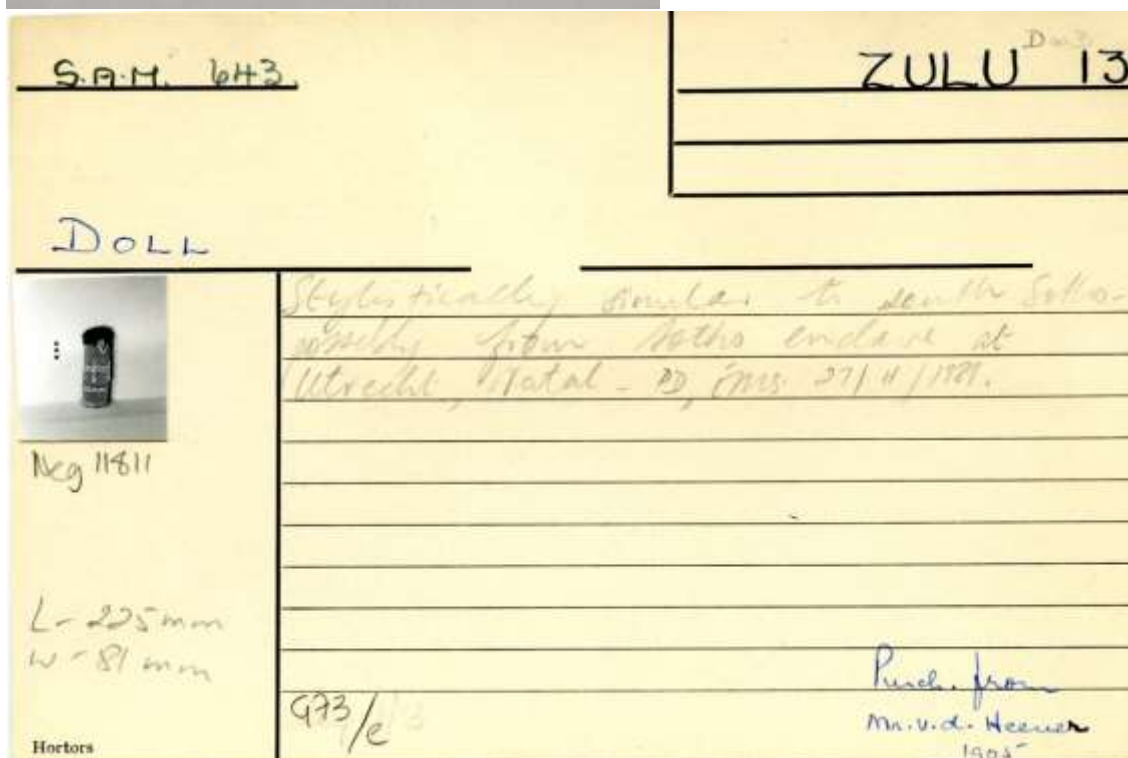 S.A.M. 643.
ZULU 13
DOLL
Stylistically similar to south Sotho-
possibly from Sotho enclave at
Utrecht, Natal - PD,
Neg 11811
L - 225 mm
W - 81 mm
G73/e
Purch. from
Mr. v.d. Heever
1905
Hortors